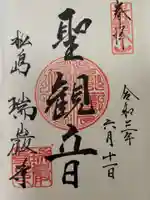 奉拝
令和二年
六月十一日
聖観立日
松島 瑞巌寺